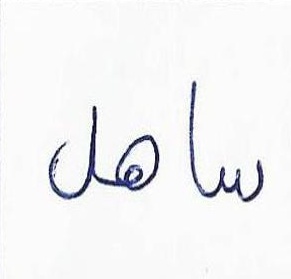 ساهل